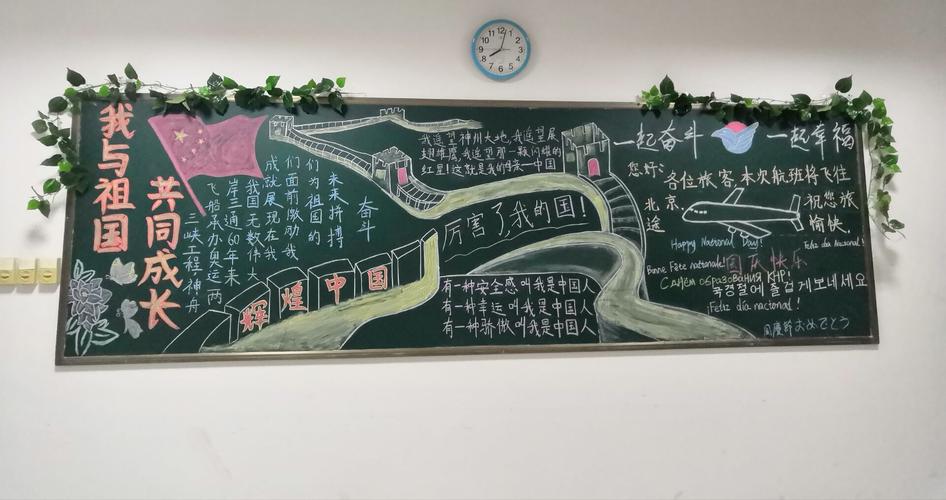 我与祖国
共同成长
三峡工程、神舟
飞船承办奥运两
岸三通60年来
我国无数伟大
成就展现在我
们面前激励我
们为祖国的
未来拼搏
奋斗
辉煌中国
我遥望神州大地,我遥望展
翅雄鹰,我遥望那一颗闪耀的
红星!这就是我的母亲—中国
厉害了,我的国!
有一种安全感叫我是中国人
有一种幸运叫我是中国人
有一种骄傲叫我是中国人
一起奋斗 一起幸福
您好:各位旅客,本次航班将飞往
北京, 祝您旅
途 愉快.
Happy National Day!
Feliz día nacional!
Bonne Fête nationale!
国庆快乐
С днём образования КНР!
국경절에 즐겁게 보내세요
¡Feliz día nacional!
国慶節おめでとう